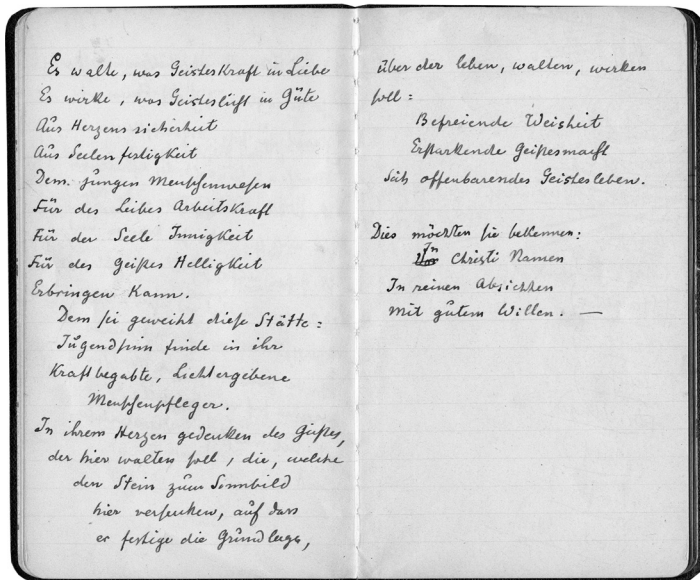 Es walte, was Geisteskraft in Liebe
Es wirke, was Geisteslicht in Güte
Aus Herzenssicherheit
Aus Seelenfestigkeit
Dem jungen Menschenwesen
Für des Leibes Arbeitskraft
Für der Seele Innigkeit
Für des Geistes Helligkeit
Erbringen kann.
Dem sei geweiht diese Stätte:
Jugendsinn finde in ihr
Kraftbegabte, Lichtergebene
Menschenpfleger.
In ihrem Herzen gedenken des Geistes,
der hier walten soll, die, welche
den Stein zum Sinnbild
hier versenken, auf dass
er festige die Grundlage,
über der leben, walten, wirken
soll:
Befreiende Weisheit
Erstarkende Geistesmacht
Sich offenbarendes Geistesleben.
Dies möchten sie bekennen:
In Christi Namen
In reinen Absichten
Mit gutem Willen. —